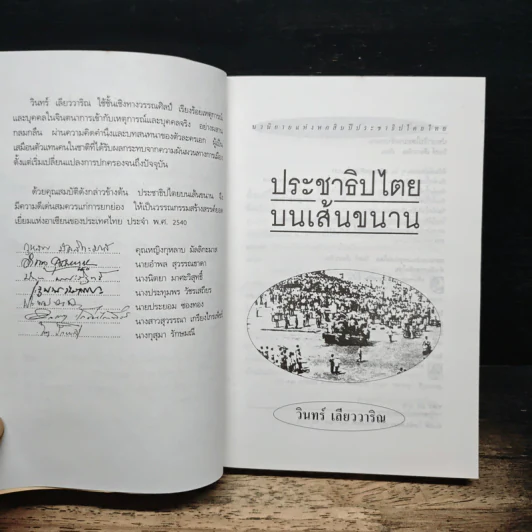 วินทร์ เลียววาริณ ใช้ชั้นเชิงทางวรรณศิลป์ เรียงร้อยเหตุการณ์
และบุคคลในจินตนาการเข้ากับเหตุการณ์และบุคคลจริง อย่าง
กลมกลืน ผ่านความคิดคำนึงและบทสนทนาของตัวละครเอก ผู้เป็น
เสมือนตัวแทนคนในชาติที่ได้รับผลกระทบจากความผันผวนทางการเมือง
ตั้งแต่เริ่มเปลี่ยนแปลงการปกครองจนถึงปัจจุบัน
ด้วยคุณสมบัติดังกล่าวข้างต้น ประชาธิปไตยบนเส้นขนาน จึง
มีความดีเด่นสมควรแก่การยกย่อง ให้เป็นวรรณกรรมสร้างสรรค์ยอด
เยี่ยมแห่งอาเซียนของประเทศไทย ประจำ พ.ศ. 2540
คุณหญิงกุหลาบ มัลลิกะมาส
นายอำพล สุวรรณธาดา
นางนิตยา มาศะวิสุทธิ์
นางประทุมพร วัชรเสถียร
นายประยอม ซองทอง
นางสาวสุวรรณา เกรียงไกรเพ็ชร์
นางกุสุมา รักษมณี
ประชาธิปไตย
บนเส้นขนาน
วินทร์ เลียววาริณ